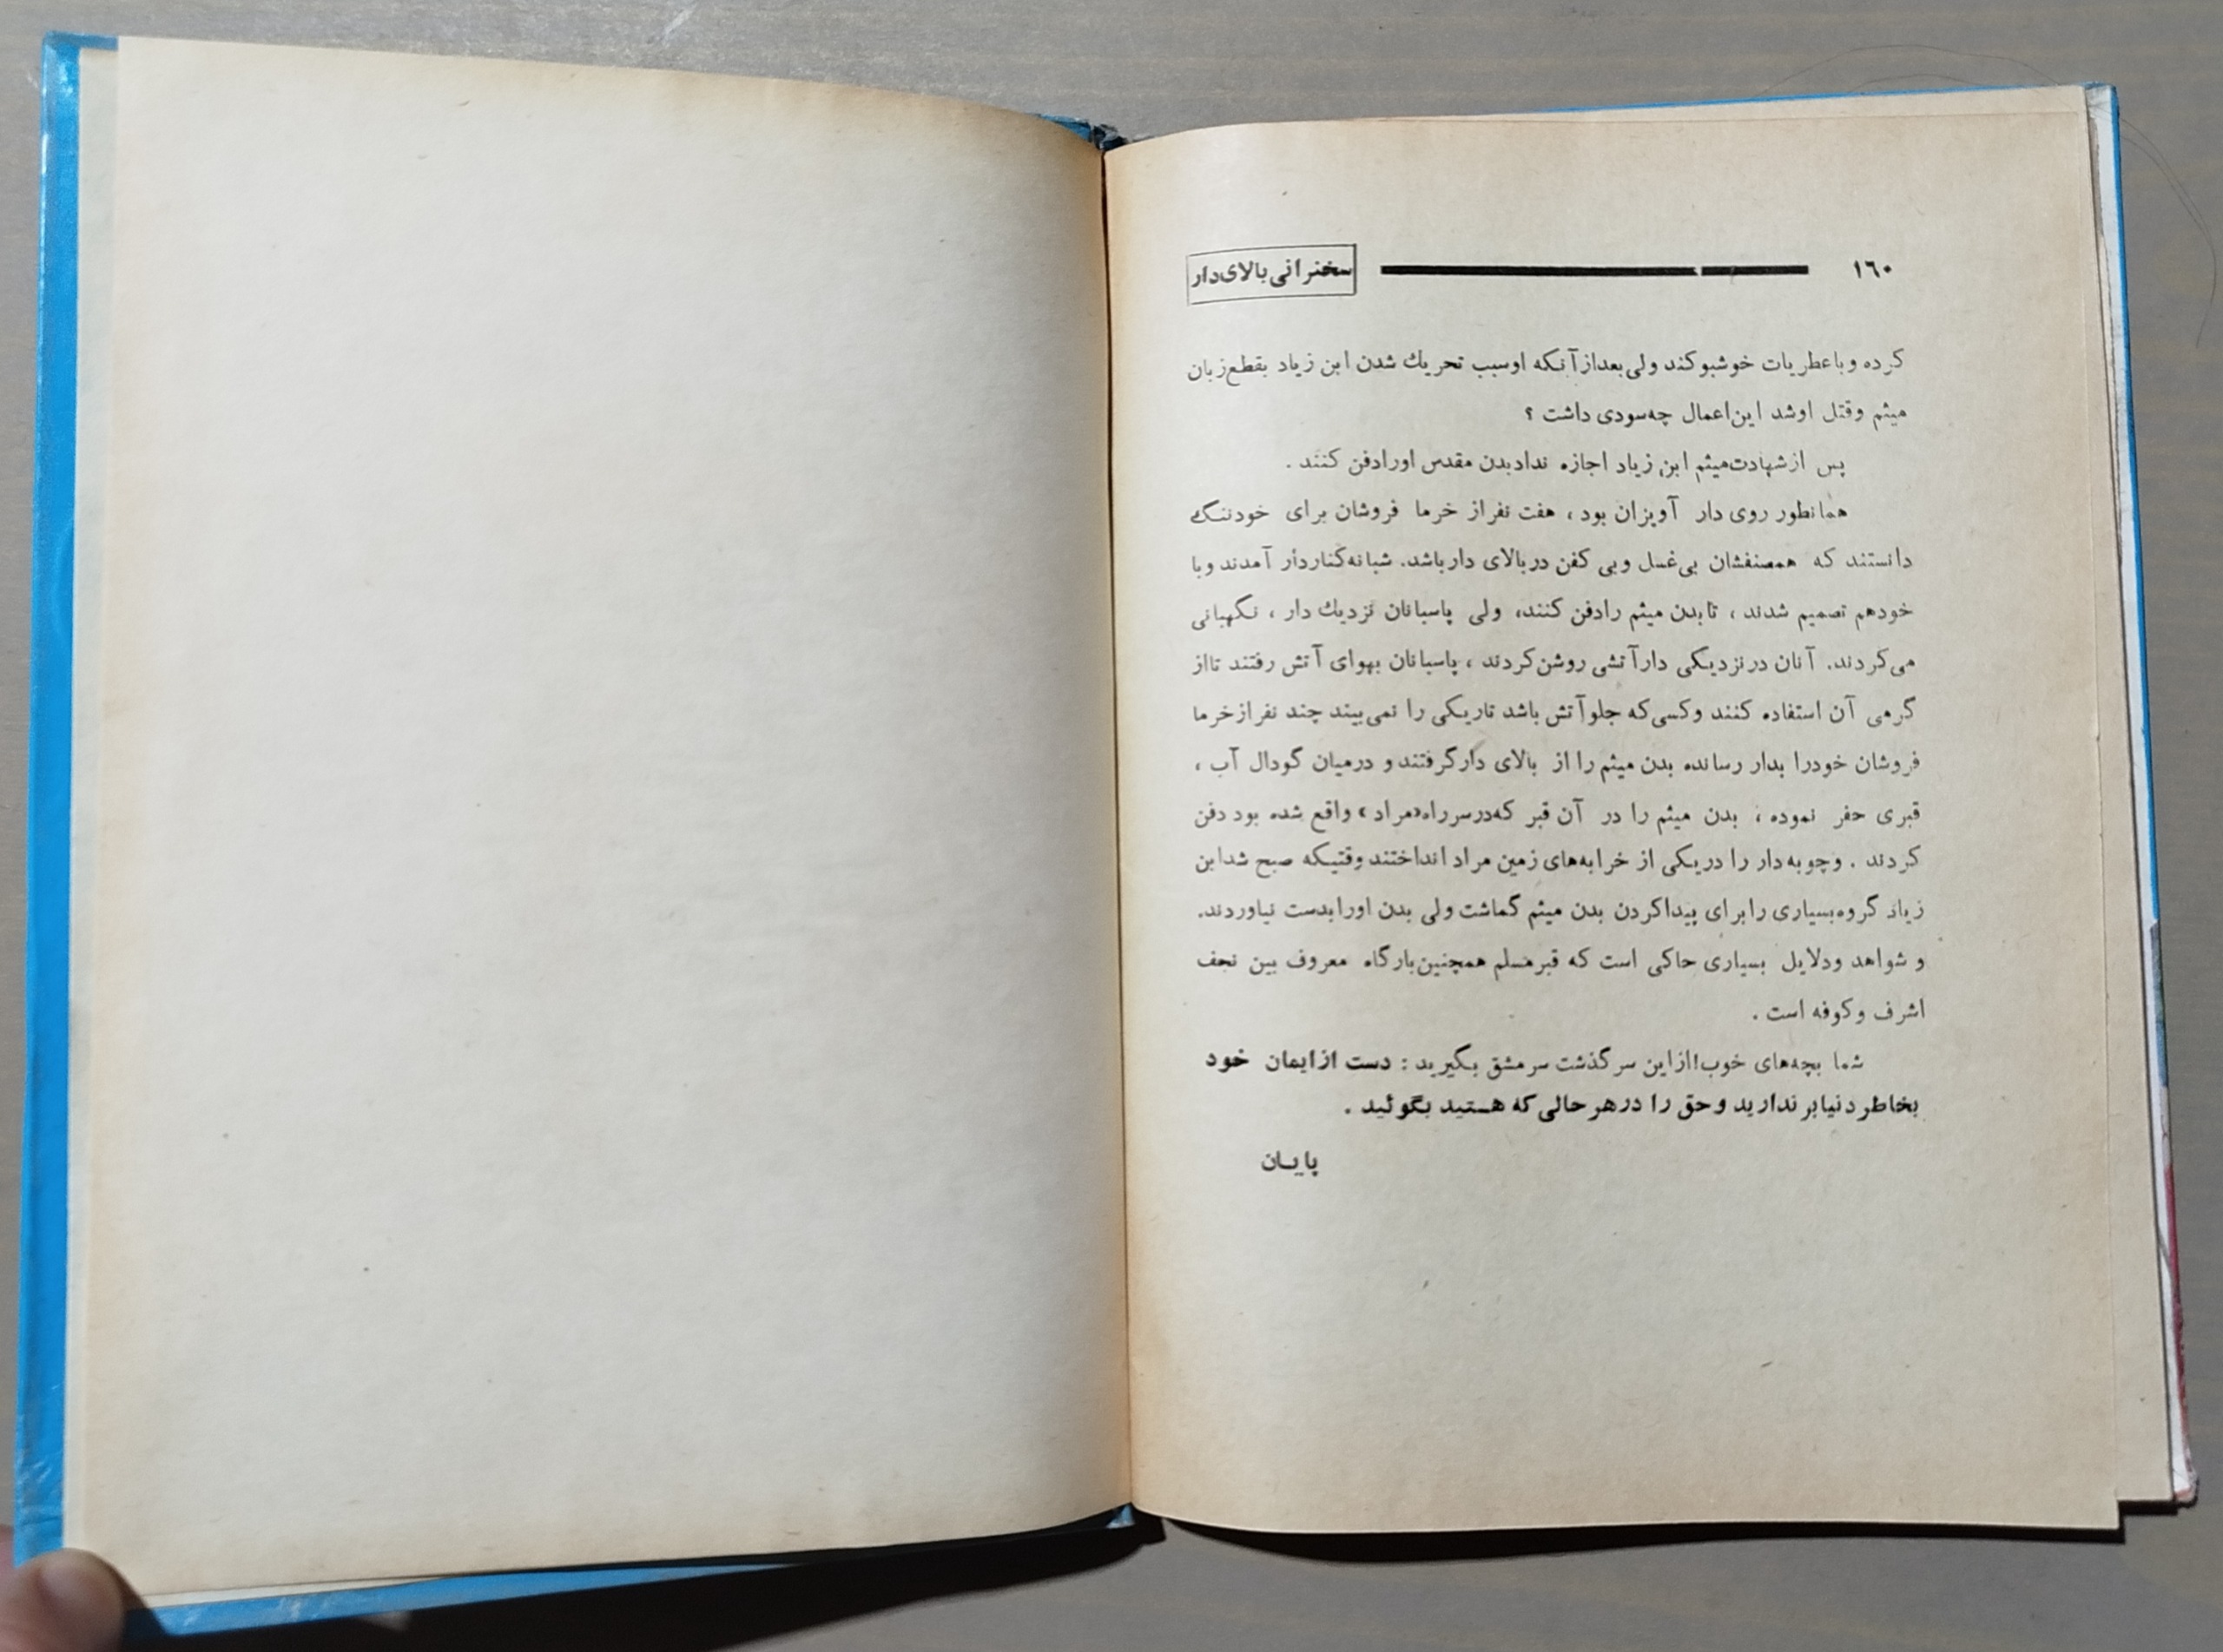 ۱٦۰ سخنرانی بالای دار
کرده و با عطریات خوشبو کند ولی بعد از آنکه او سبب تحریك شدن ابن زیاد بقطع زبان
میثم و قتل او شد این اعمال چه سودی داشت ؟
پس از شهادت میثم ابن زیاد اجازه نداد بدن مقدس او را دفن کنند .
همانطور روی دار آویزان بود ، هفت نفر از خرما فروشان برای خود ننگ
دانستند که همصنفشان بی غسل و بی کفن در بالای دار باشد. شبانه کنار دار آمدند و با
خود هم تصمیم شدند ، تا بدن میثم را دفن کنند، ولی پاسبانان نزدیك دار ، نگهبانی
می کردند. آنان در نزدیکی دار آتشی روشن کردند ، پاسبانان بهوای آتش رفتند تا از
گرمی آن استفاده کنند و کسی که جلو آتش باشد تاریکی را نمی بیند چند نفر از خرما
فروشان خود را بدار رسانده بدن میثم را از بالای دار گرفتند و در میان گودال آب ،
قبری حفر نموده ، بدن میثم را در آن قبر که در سر راه «مراد» واقع شده بود دفن
کردند . و چوبه دار را در یکی از خرابه های زمین مراد انداختند وقتیکه صبح شد ابن
زیاد گروه بسیاری را برای پیدا کردن بدن میثم گماشت ولی بدن او را بدست نیاوردند.
و شواهد و دلایل بسیاری حاکی است که قبر مسلم همچنین بارگاه معروف بین نجف
اشرف و کوفه است .
شما بچه های خوب! از این سرگذشت سرمشق بگیرید : دست از ایمان خود
بخاطر دنیا بر ندارید و حق را در هر حالی که هستید بگوئید .
پایان